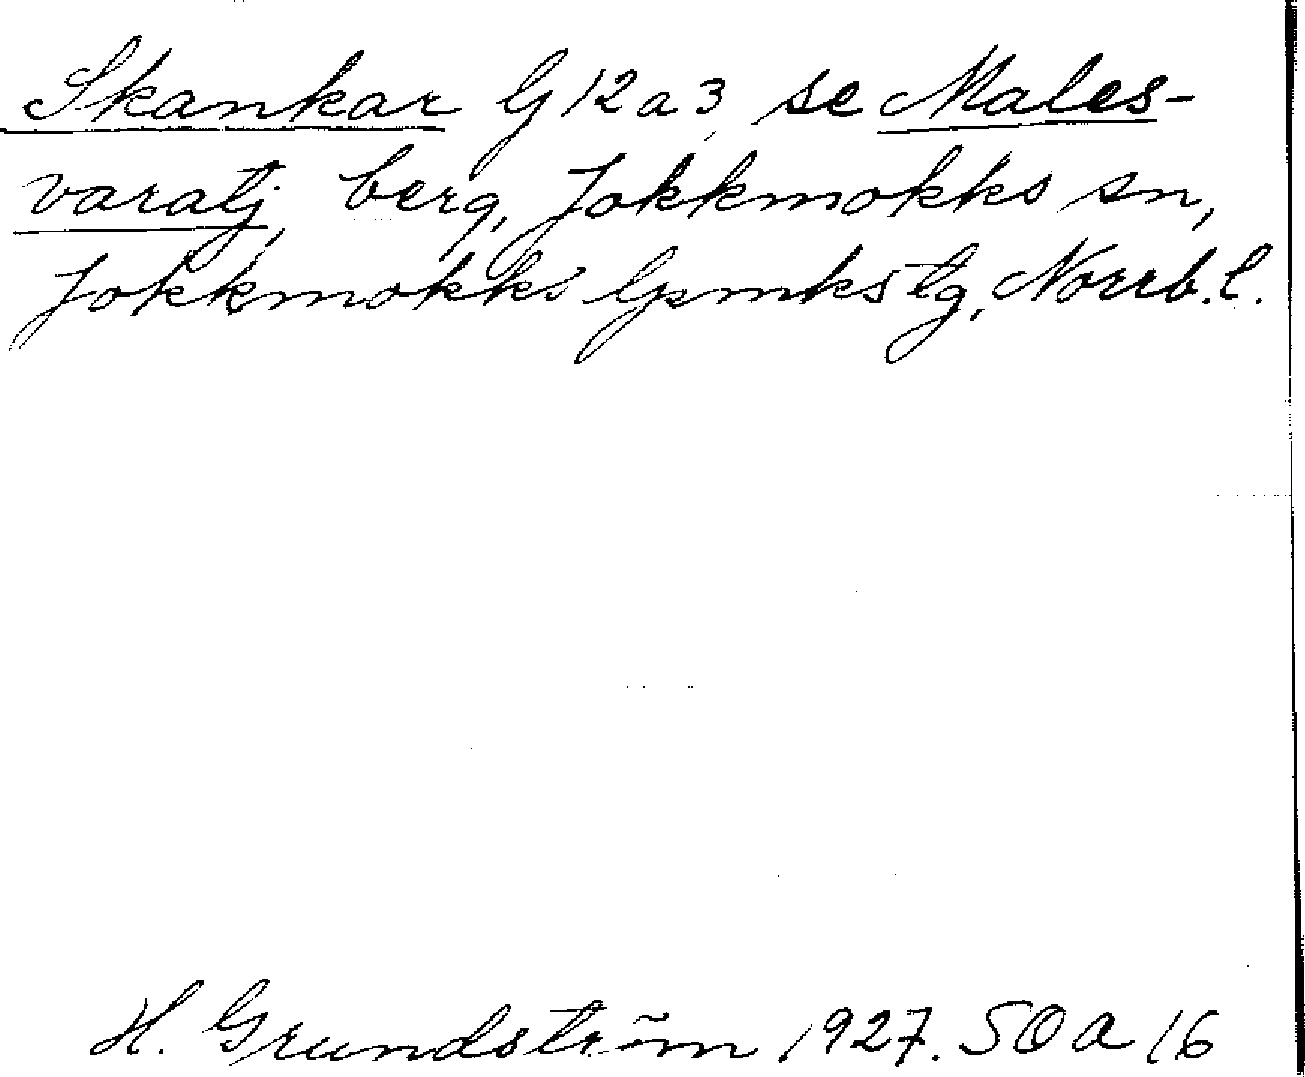 Skankar G 12 a 3, se Males-
varatj, berg, Jokkmokks sn,
Jokkmokks lpmkstg, Norrb.l.
H. Grundström 1927. SOA 16